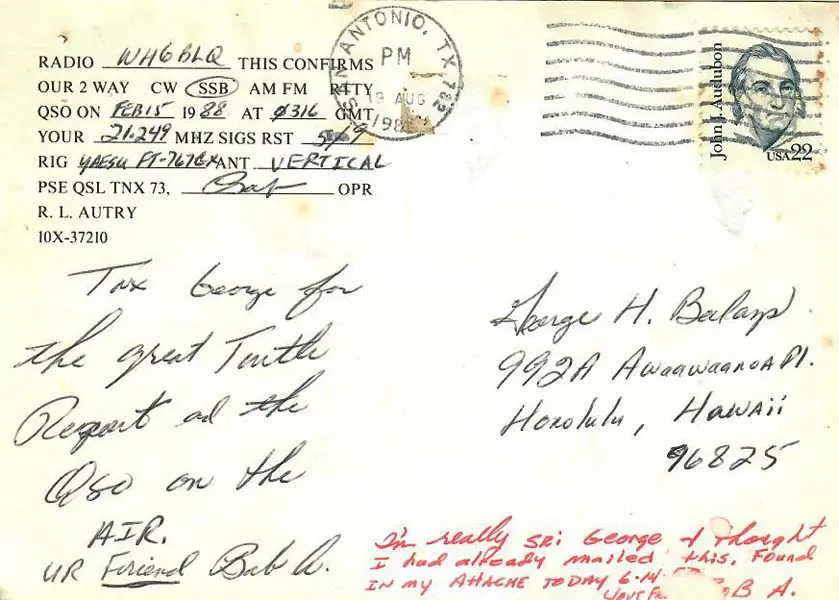 RADIO WH6BLQ THIS CONFIRMS
OUR 2 WAY CW SSB AM FM RTTY
QSO ON FEB 15 1988 AT Ø316 GMT
YOUR 21.249 MHZ SIGS RST 5/9
RIG YAESU FT-767GX ANT VERTICAL
PSE QSL TNX 73, Bob OPR
R. L. AUTRY
10X-37210
SAN ANTONIO, TX, 782
PM
19 AUG
John J. Audubon
USA 22
Tnx George for
the great Turtle
Report ad the
QSO on the
AIR.
UR Friend Bob A.
George H.
992A Awaawaanoa Pl.
Honolulu, Hawaii
96825
I'm really sri George I thought
I had already mailed this. Found
IN my ATTACHE TODAY 6-14
Your B A.